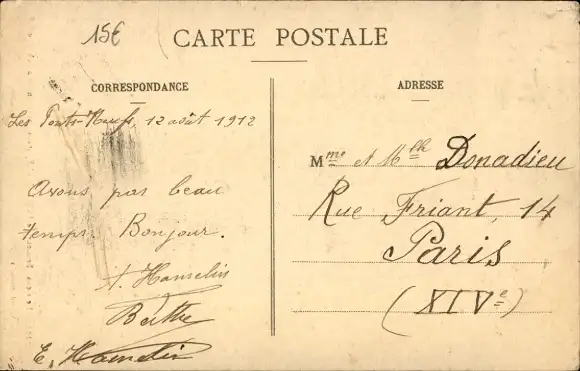 15€
CARTE POSTALE
CORRESPONDANCE
ADRESSE
Les Ponts-Neufs, 12 août 1912
Avons pas beau
temps. Bonjour.
A. Hamelin
Berthe
E. Hamelin
Mme et Mlle Donadieu
Rue Friant, 14
Paris
(XIVe)